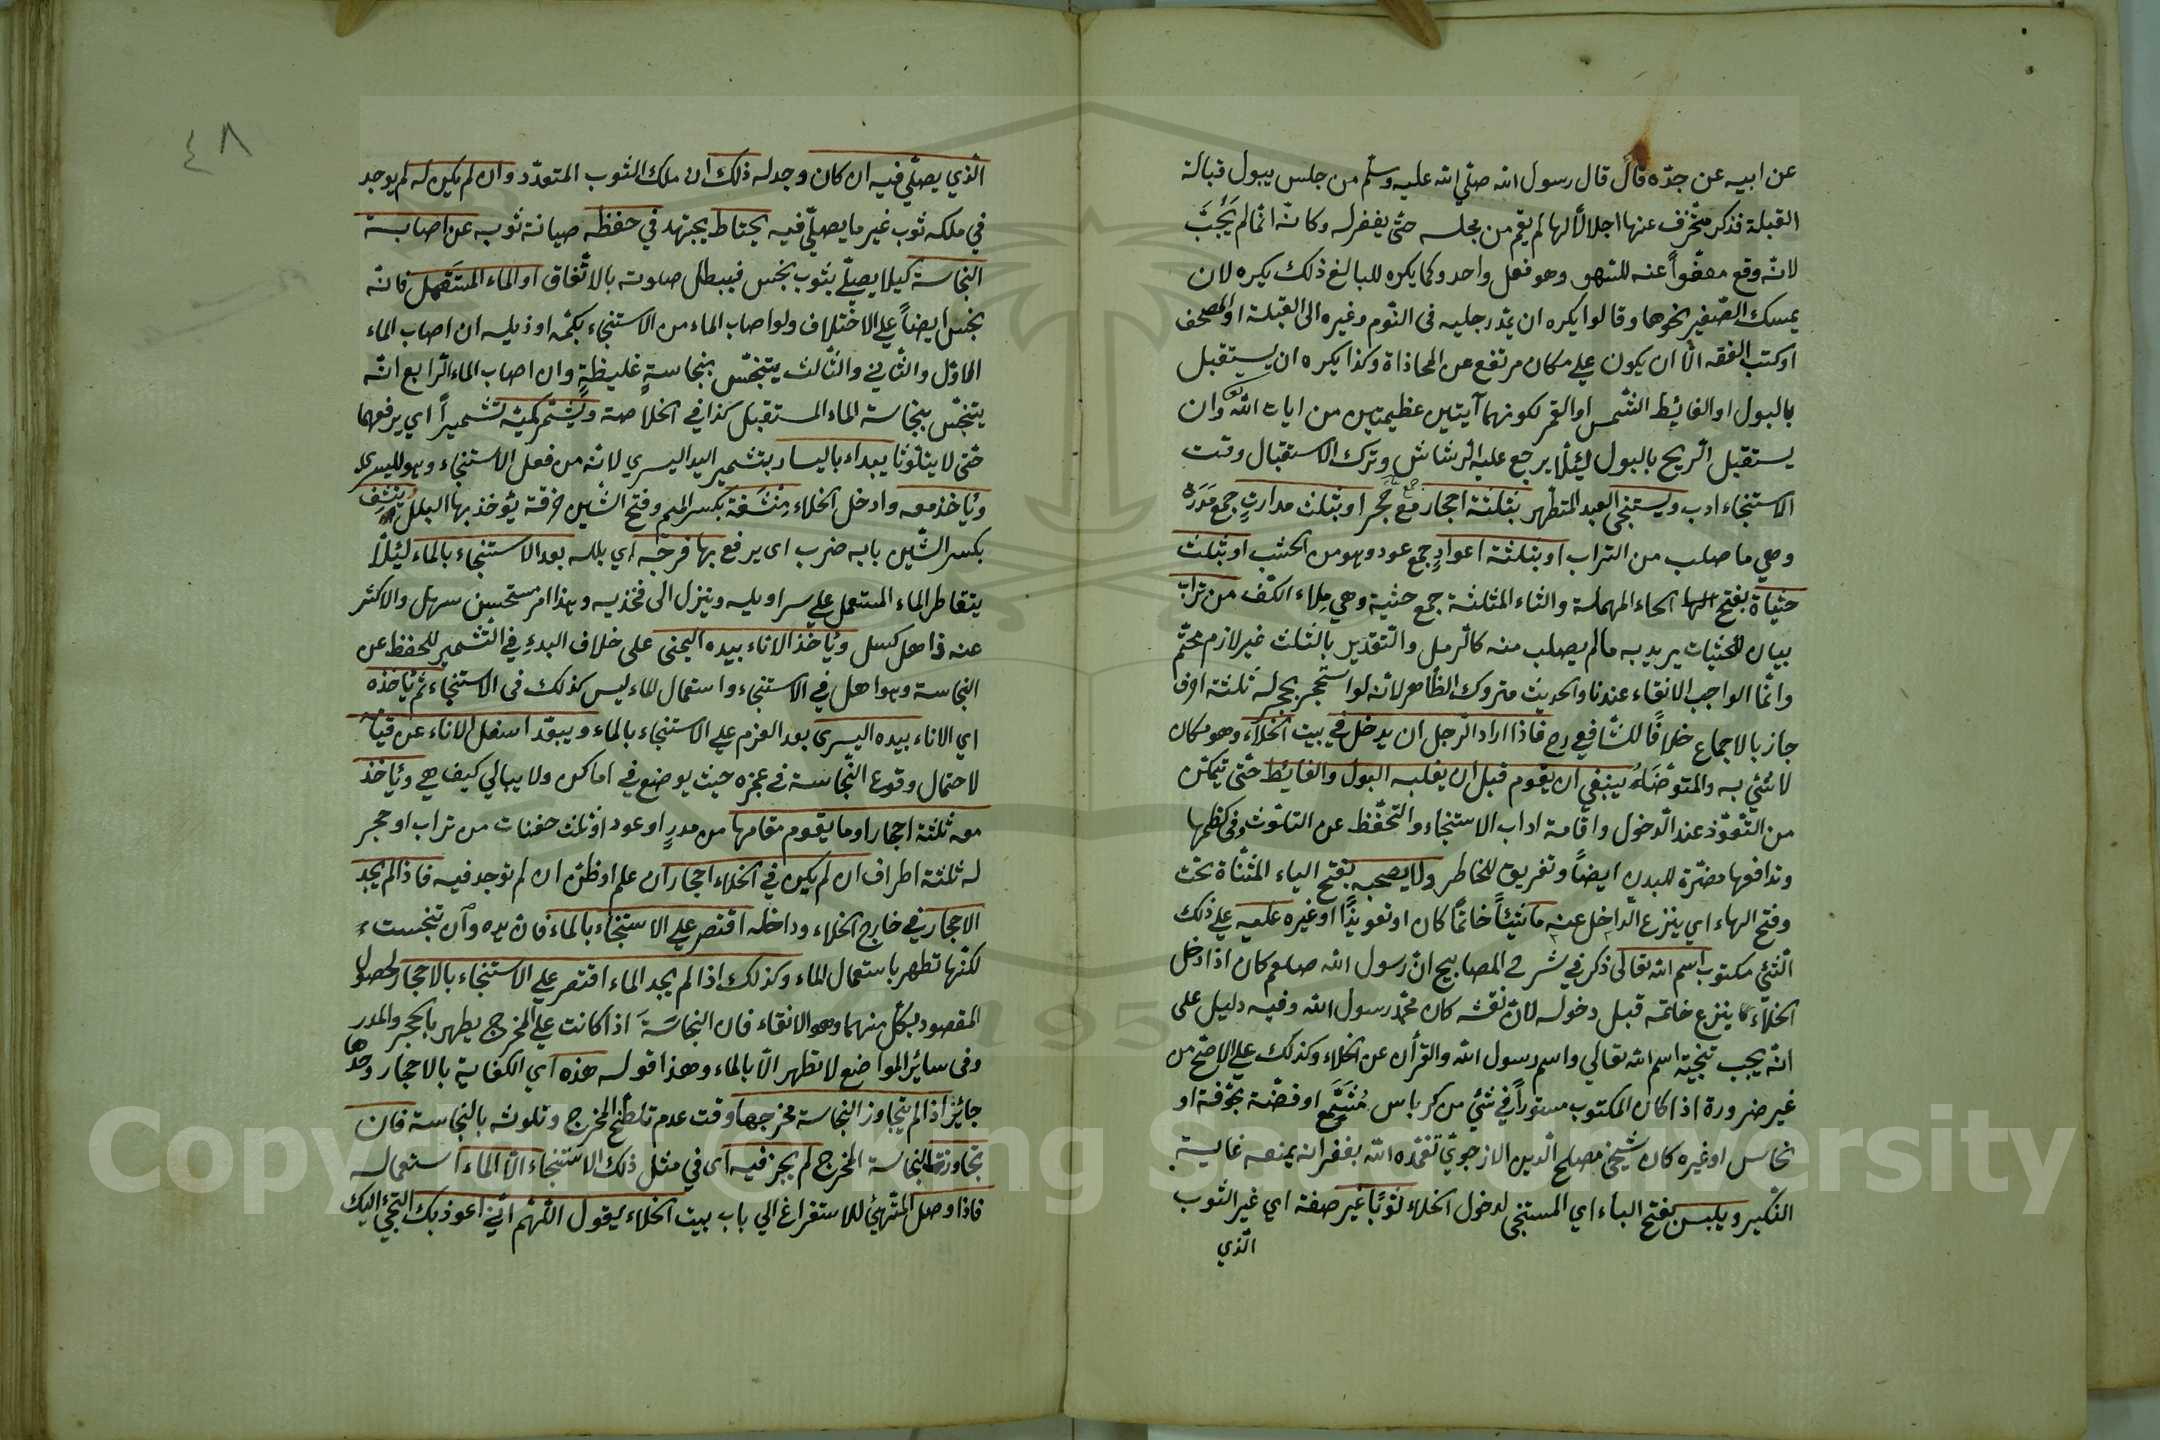 عن ابيه عن جدّه قال قال رسول الله صلّي الله عليه وسلّم من جلس يبول قبالة
القبلة فذكر فتحرّف عنها اجلالاً لها لم يقم من مجلسه حتّى يغفر له وكانّه انّما لم يجب
لانّه وقع معفوّاً عنه للسّهو وهو فعل واحد وكما يكره للبالغ ذلك يكره لان
يمسك الصّغير نحوها وقالوا يكره ان يمدّ رجليه فى النّوم وغيره الى القبلة او المصحف
او كتب الفقه الّا ان يكون علي مكان مرتفع عن المحاذاة وكذا يكره ان يستقبل
بالبول او الغائط الشّمس او القمر لكونهما آيتين عظيمتين من ايات الله وان
يستقبل الرّيح بالبول ليئلّا يرجع عليه الرّشاش وترك الاستقبال وقت
الاستنجاء ادب ويستنجى العبد المتطهّر بثلثة احجار جمع حجر او بثلث مدارتٍ جمع مَدَرَة
وهي ما صلب من التراب او بثلثة اعوادٍ جمع عود وهو من الخشب او بثلث
حثياة بفتح الحاء المهملة والثاء المثلثة جمع حثية وهي مِلاء الكفّ من ترابٍ
بيان للحثيات يريد به مالم يصلب منه كالرّمل والتّقدير بالثلث غير لازم محتّم
وانّما الواجب الانقاء عندنا والحديث متروك الظّاهر لانّه لو استجمر بحجر له ثلثة احرف
جاز بالاجماع خلافًا للشّافعي رح فاذا اراد الرّجل ان يدخل في بيت الخلاء وهو مكان
لاشئ به والمتوضّاءُ ينبغي ان يقوم قبل ان يغلبه البول والغائط حتّى يتمكّن
من التّعوّذ عند الدّخول واقامة اداب الاستنجاء والتّحفّظ عن التلوّث وفى كظمها
وتدافعها مضرّة للبدن ايضًا وتفريق للخاطر ولا يصحبه بفتح الياء المثنّاة تحت
وفتح الهاء اي ينزع الداخل عنه ما شيئاً خاتمًا كان او تعويذًا او غيره عليه علي ذلك
الشّئ مكتوب اسم الله تعالى ذكر في شرح المصابيح انّ رسول الله صلعم كان اذا دخل
الخلاء ينزع خاتمه قبل دخوله لانّ نقشه كان محمّد رسول الله وفيه دليل على
انّه يجب تنحية اسم الله تعالي واسم رسول الله والقرأن عن الخلاء وكذلك علي الاصّح من
غير ضرورة اذا كان المكتوب مستوراً في شئ من كرباس مُشَمَّع او فضّة مجوّفة او
نحاس او غيره كان شيخى مصلح الدّين الازجويّ تغمّده الله بغفرانه يمنعه غاية
النّكير ويلبس بفتح الباء اي المستنجى لدخول الخلاء ثوبًا غير صفة اي غير الثوب
الّذي
٤٨
الّذي يصلّي فيه ان كان وجد له ذلك ان ملك الثوب المتعدّد وان لم يكن له لم يوجد
في ملكه ثوب غير ما يصلّي فيه يحتاط يجتهد في حفظه صيانة ثوبه عن اصابة
النجاسة كيلا يصلّي بثوب نجس فيبطل صلوته بالاتّفاق او الماء المستعمل فانّه
نجس ايضاً علي الاختلاف ولو اصاب الماء من الاستنجاء بكمّه او ذيله ان اصاب الماء
الاوّل والثّاني والثّالث يتنجّس بنجاسةٍ غليظةٍ وان اصاب الماء الرّابع انّه
يتنجّس بنجاسة الماء المستقبل كذا في الخلاصة ويشمّر كمّيه تشميراً اي يرفعهما
حتّى لا يتلوّثا يبداء باليسار بتشمير اليد اليسري لانّه من فعل الاستنجاء وهو لليسرى
ويأخذ معه وادخل الخلاء مِنْشَفة بكسر الميم وفتح الشّين خرقة يؤخذ بها البلل ينشف
بكسر الشّين بابه ضرب اى يرفع بها فرجه اي بلله بعد الاستنجاء بالماء ليئلّا
يتقاطر الماء المستعمل علي سراويله وينزل الى فخذيه وهذا امر مستحسن سهل والاكثر
عنه ذاهل كسل ويأخذ الاناء بيده اليمنى على خلاف البدءِ في التّشمير للحفظ عن
النجاسة وهو اهل في الاستنجاء واستعمال الماء ليس كذلك فى الاستنجاء ثمّ يأخذه
اي الاناء بيده اليسرى بعد العزم علي الاستنجاء بالماء ويبعّد اسفل الاناء عن قيامه
لاحتمال وقوع النّجاسة في عجزه حيث يوضع في اماكن ولا يبالي كيف هي ويأخذ
معه ثلثة احجار او ما يقوم مقامها من مدرٍ او عود او ثلث حفنات من تراب او حجر
له ثلثة اطراف ان لم يكن في الخلاء احجار ان علم او ظنّ ان لم توجد فيه فاذا لم يجد
الاحجار في خارج الخلاء وداخله اقتصر علي الاستنجاء بالماء فان يده وان تنجست
لكنّها تطهر باستعمال الماء وكذلك اذا لم يجد الماء اقتصر علي الاستنجاء بالاحجار لحصول
المقصود بكلّ منهما وهو الانقاء فان النجاسَةَ اذا كانت علي المخرج يطهر بالحجر والمدر
وفى سائر المواضع لا تطهر الّا بالماء وهذا قوله هذه اي الكفاية بالاحجار وحدها
جائز اذا لم يتجاوز النجاسة مخرجها وقت عدم تلطّخ المخرج وتلوثه بالنجاسة فان
تجاوزت النجاسة المخرج لم يجز فيه اى في مثل ذلك الاستنجاء الّا الماء استعماله
فاذا وصل المتهيّئ للاستفراغ الي باب بيت الخلاء ليقول اللّهمّ انّي اعوذ بك التجئ اليك
Copyright © King Saud University
1957